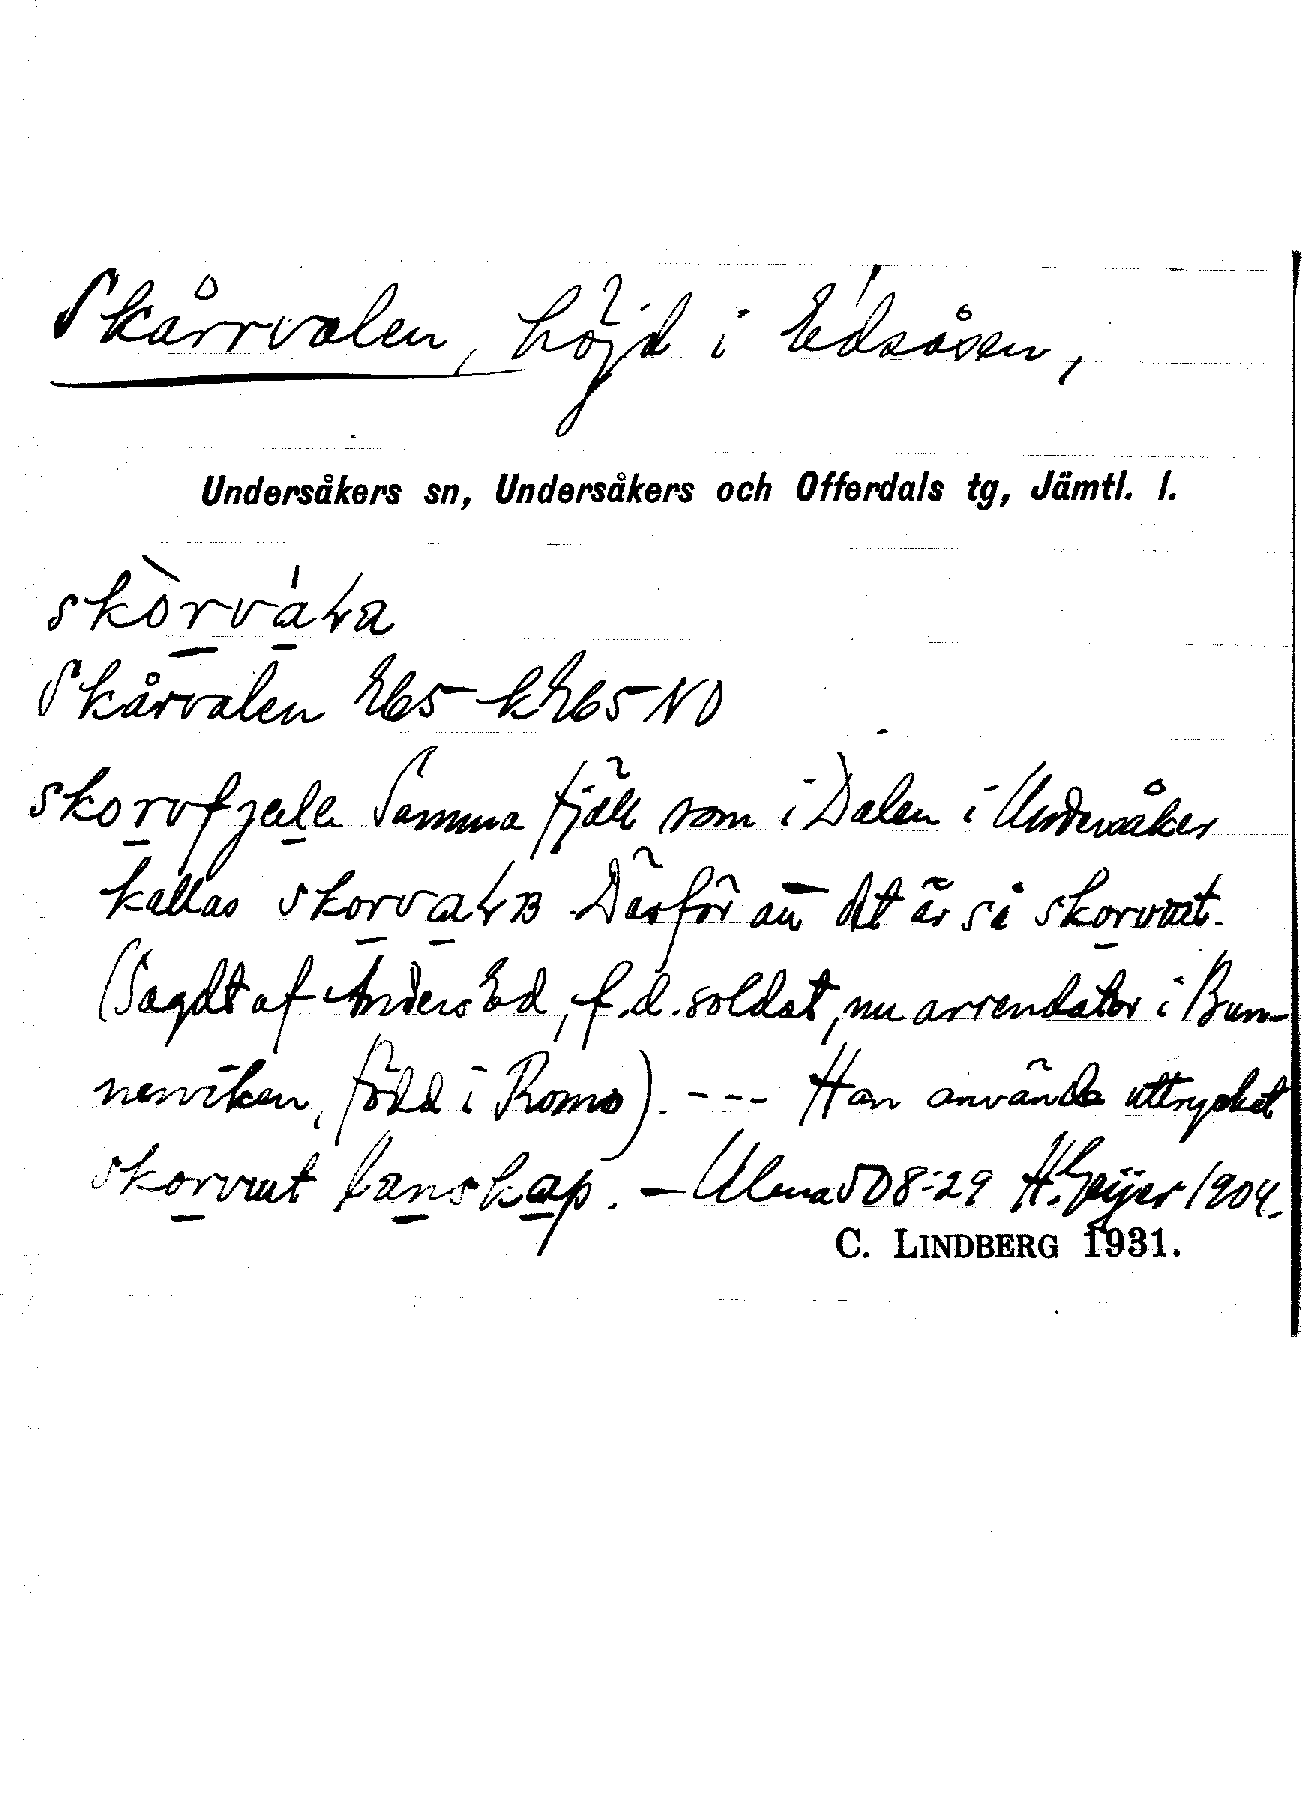 Skårrvalen, höjd i Edsåsen,
Undersåkers sn, Undersåkers och Offerdals tg, Jämtl. l.
skòrváɬa
Skårvalen Eb5 - k Eb5 NO
skorvfjæll Samma fjäll som i Dalen i Undersåker
kallas skorvaɬʙ Därför att det är så skorvut.
(Sagdt af Anders Ed, f.d. soldat, nu arrendator i Bun-
nerviken, född i Romo). --- Han använde uttrycket
skorvut lanskap. - Ulma 508:29 H. Geijer 1904.
C. LINDBERG 1931.